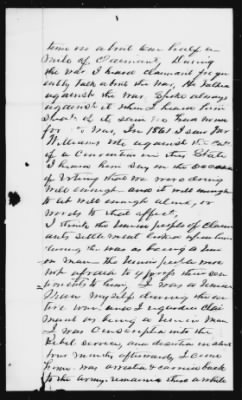 time on about one half a
mile of Claimant, During
the war I heard claimant freq
uently talk about the war, He talked
against the war. Spoke always
against it when I heard him
Speak of it same no tired name
for the war, In 1861 I saw
Williams vote against the
of a Convention in this State
I heard him Say on the occasion
of Voting that we were doing
well enough and it will enough
to let well enough alone, or
words to that effect,
I think the Union people of Claim
ants settlement looked upon him
during the war as being a Uni
on man. The Union people were
not afraid to express their sen
timents to him, I was a Union
man myself during the en
tire war, and I regarded Clai
mant as being a Union man
I was Conscripted into the
Rebel service, and deserted in about
four months afterwards, I came
home was arrested & carried back
to the Army, remained there awhile